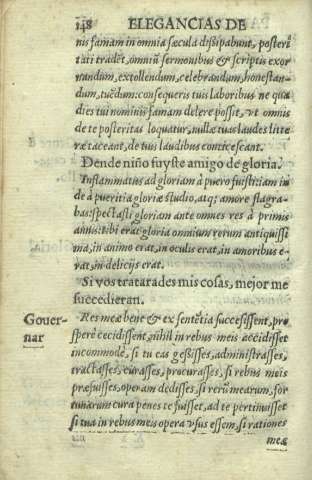 148 ELEGANCIAS DE
nis famam in omnia sæcula dissipabunt, posterĩ
tati tradẽt, omniũ sermonibus & scriptis exor
nandum, extollendum, celebrandum, honestan-
dum, tuẽdum: consequeris tuis laboribus ne qua
dies tui nominis famam delere possit, vt omnis
de te posteritas loquatur, nullæ tuas laudes litte
ræ taceant, de tuis laudibus conticescant.
Dende niño fuyste amigo de gloria.
Inflammatus ad gloriam à puero fuisti: iam in
de à pueritia gloriæ studio, atq; amore flagra-
bas: spectasti gloriam ante omnes res à primis
annis: tibi erat gloria omnium rerum antiquissi
ma, in animo erat, in oculis erat, in amoribus e-
rat, in delicijs erat.
Si vos tratarades mis cosas, mejor me
succedieran.
Gouer-
nar
Res meæ bene & ex sentẽtia successissent, pro
sperè cecidissent, nihil in rebus meis accidisset
incommodè, si tu eas gessisses, administrasses,
tractasses, curasses, procurasses, si rebus meis
præfuisses, operam dedisses, si rerũ mearum, for
tunarum cura penes te fuisset, ad te pertinuisset
si tua in rebus meis opera vsus essem, si rationes
meæ